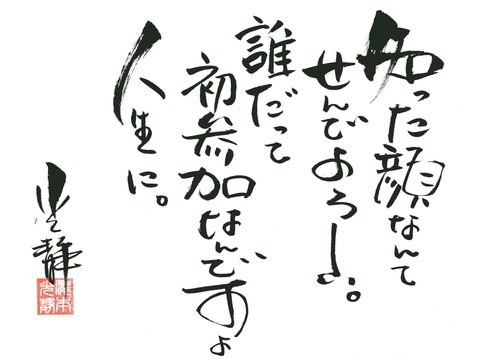 知った顔なんて
せんでよろし。
誰だって
初参加なんですよ
人生に。
光静
瀧本
光静